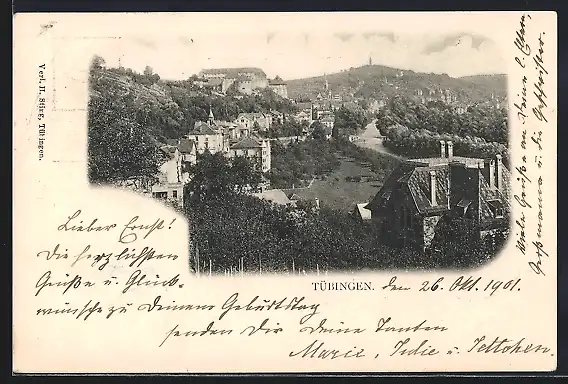 Verl. H. Sting, Tübingen.
Lieber Ernst!
Die herzlichsten
Grüße u. Glück-
wünsche zu Deinem Geburtstag
senden Dir Deine Tanten
Marie, u.
TÜBINGEN. den 26. Okt. 1901.
Viele Grüße an Deine l. Eltern,
Großmama u. die Geschwister.